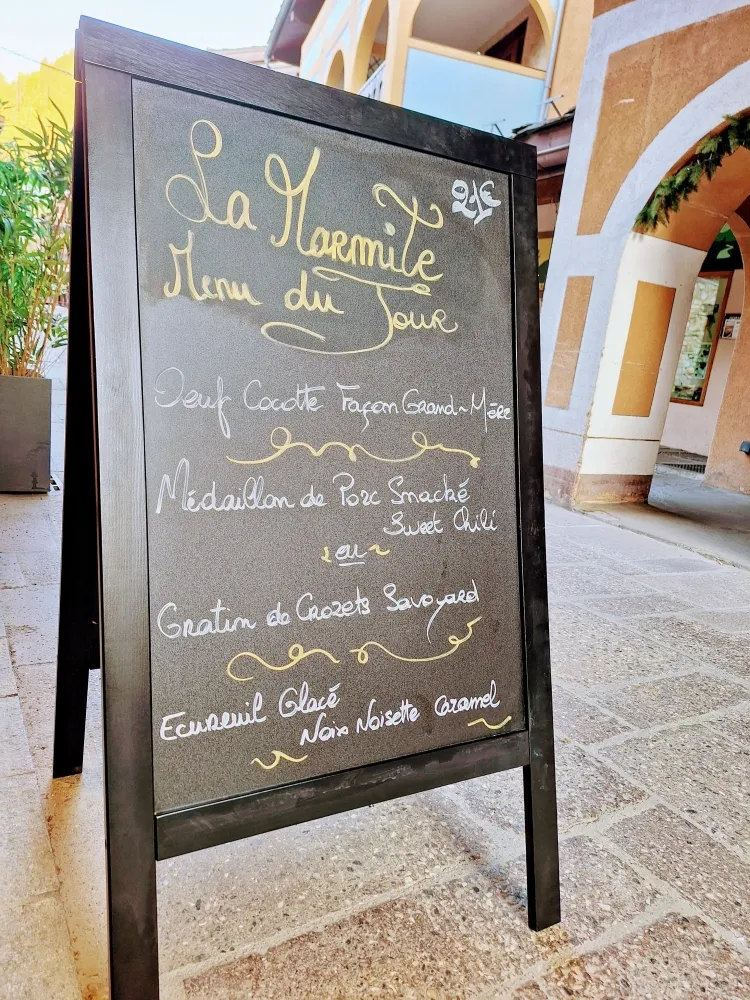 La Marmite
21€
Menu du Jour
Oeuf Cocotte Façon Grand-Mère
Médaillon de Porc Snacké
Sweet Chili
ou
Gratin de Crozets Savoyard
Ecureuil Glacé
Noix Noisette Caramel